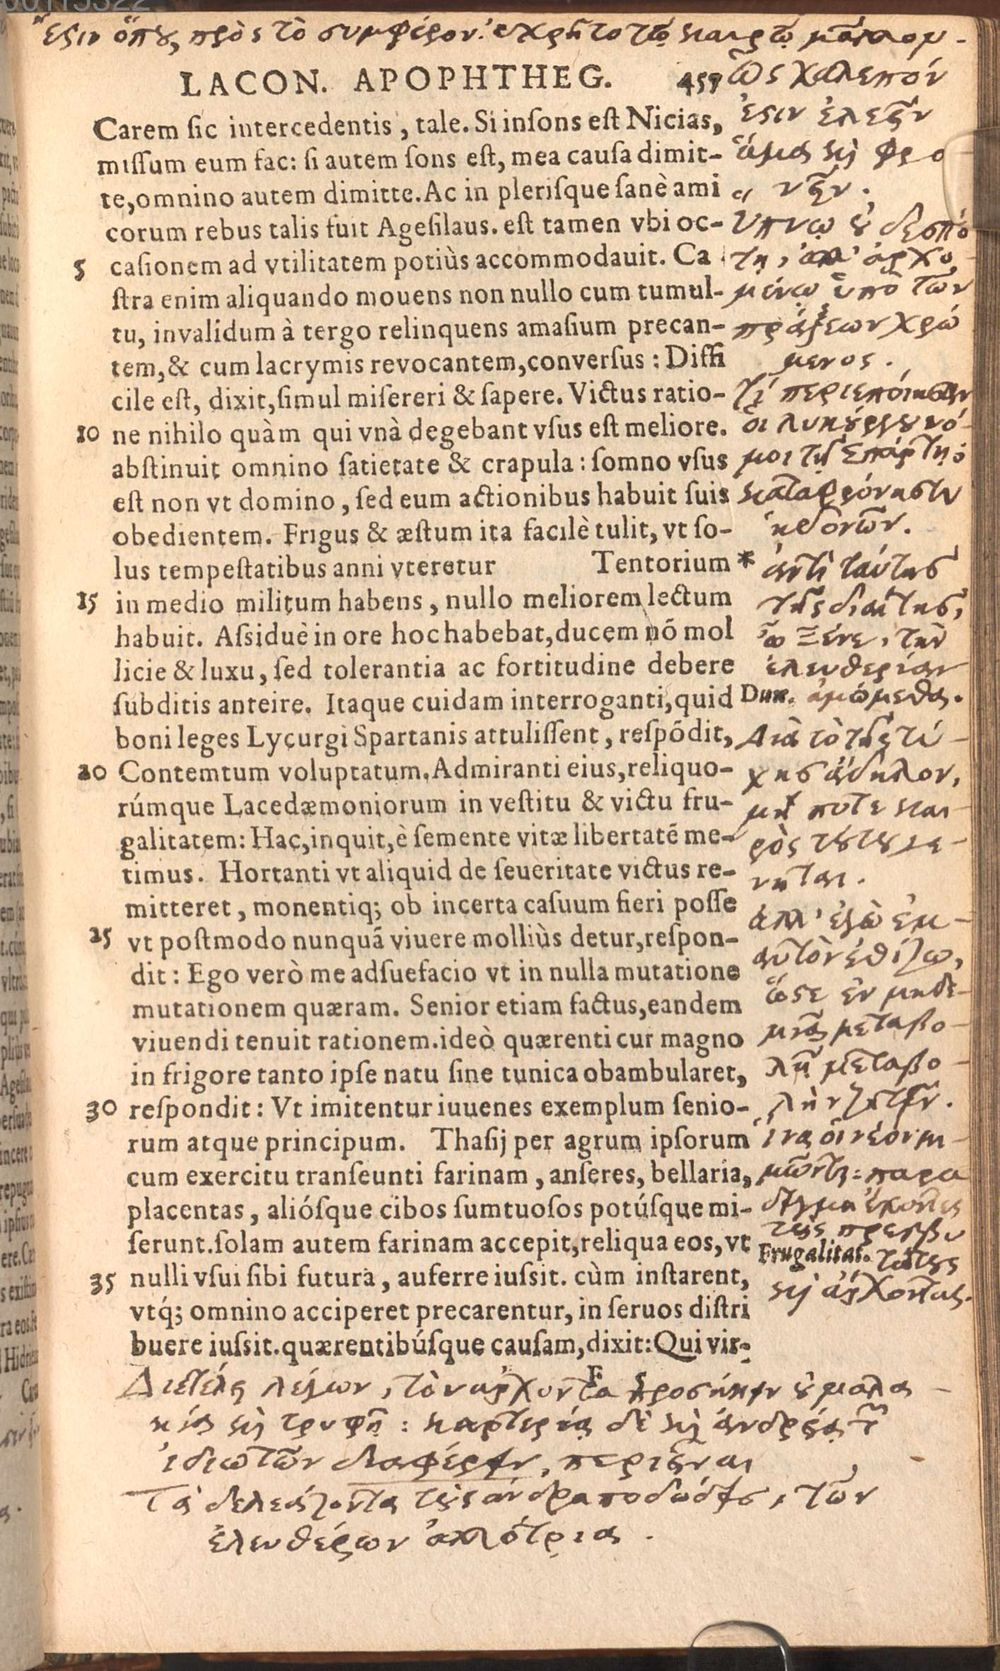 ἔστιν ὅπου πρὸς τὸ συμφέρον ἐχρῆτο τῷ καιρῷ μᾶλλον.
LACON. APOPHTHEG. 457
Carem ſic intercedentis, tale. Si inſons eſt Nicias,
miſſum eum fac: ſi autem ſons eſt, mea cauſa dimit-
te, omnino autem dimitte. Ac in pleriſque ſanè ami
corum rebus talis fuit Ageſilaus. eſt tamen vbi oc-
5 caſionem ad vtilitatem potiùs accommodauit. Ca
ſtra enim aliquando mouens non nullo cum tumul-
tu, inualidum à tergo relinquens amaſium precan-
tem, & cum lacrymis revocantem, converſus: Diffi
cile eſt, dixit, ſimul miſereri & ſapere. Victus ratio-
10 ne nihilo quàm qui vnà degebant vſus eſt meliore.
abſtinuit omnino ſatietate & crapula: ſomno vſus
eſt non vt domino, ſed eum actionibus habuit ſuis
obedientem. Frigus & æſtum ita facilè tulit, vt ſo-
lus tempeſtatibus anni vteretur Tentorium *
15 in medio militum habens, nullo meliorem lectum
habuit. Aſſiduè in ore hoc habebat, ducem nõ mol
licie & luxu, ſed tolerantia ac fortitudine debere
ſubditis anteire. Itaque cuidam interroganti, quid
boni leges Lycurgi Spartanis attuliſſent, reſpõdit,
20 Contemtum voluptatum. Admiranti eius, reliquo-
rúmque Lacedæmoniorum in veſtitu & victu fru-
galitatem: Hac, inquit, è ſemente vitæ libertatẽ me-
timus. Hortanti vt aliquid de ſeueritate victus re-
mitteret, monentiq; ob incerta caſuum fieri poſſe
25 vt poſtmodo nunquã viuere molliùs detur, reſpon-
dit: Ego verò me adſuefacio vt in nulla mutatione
mutationem quæram. Senior etiam factus, eandem
viuendi tenuit rationem. ideò quærenti cur magno
in frigore tanto ipſe natu ſine tunica obambularet,
30 reſpondit: Vt imitentur iuuenes exemplum ſenio-
rum atque principum. Thaſij per agrum ipſorum
cum exercitu tranſeunti farinam, anſeres, bellaria,
placentas, alióſque cibos ſumtuoſos potúſque mi-
ſerunt. ſolam autem farinam accepit, reliqua eos, vt
35 nulli vſui ſibi futura, auferre iuſſit. cùm inſtarent,
vtq́; omnino acciperet precarentur, in ſeruos diſtri
buere iuſſit. quærentibúſque cauſam, dixit: Qui vir-
F 5
ὡς χαλεπόν
ἐστιν ἐλεεῖν
ἅμα καὶ φρο-
νεῖν.
ὕπνῳ οὐ δεσπό
τῃ, ἀλλ' ἀρχο
μένῳ ὑπὸ τῶν
πράξεων χρώ
μενος.
τί περιεποίησαν
οἱ Λυκούργου νό-
μοι τῇ Σπάρτῃ;
καταφρόνησιν
ἡδονῶν.
ἀντὶ ταύτης
τῆς διαίτης,
ὦ ξένε, τὴν
ἐλευθερίαν
Dux. ἀμώμεθα.
Διὰ τὸ τῆς τύ-
χης ἄδηλον,
μή ποτε και-
ρὸς τούτου γε-
νῆται.
ἀλλ' ἐγὼ ἐμ-
αυτὸν ἐθίζω,
ὥστε ἐν μηδε-
μιᾷ μεταβο-
λῇ μεταβο-
λὴν ζητεῖν.
ἵνα οἱ νέοι μι-
μῶνται παρα
δειγμα ἔχοντες
τοὺς πρεσβυ
Frugalitas. τάτους
καὶ ἄρχοντας.
Διετέλει λέγων, τὸν ἄρχοντα προσήκειν οὐ μαλα-
κίᾳ καὶ τρυφῇ: καρτερίᾳ δὲ καὶ ἀνδρείᾳ τῶν
ἰδιωτῶν διαφέρειν, περιεῖναι
Τὰ δελεάζοντα τοὺς ἀνδραποδώδεις, τῶν
ἐλευθέρων ἀλλότρια.